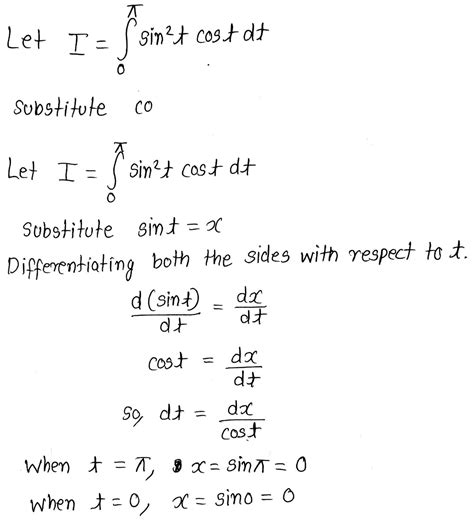 Let I = ∫₀^π sin²t cost dt
substitute co
Let I = ∫₀^π sin²t cost dt
substitute sint = x
Differentiating both the sides with respect to t.
d(sint)/dt = dx/dt
cost = dx/dt
so, dt = dx/cost
when t = π, x = sinπ = 0
when t = 0, x = sin0 = 0